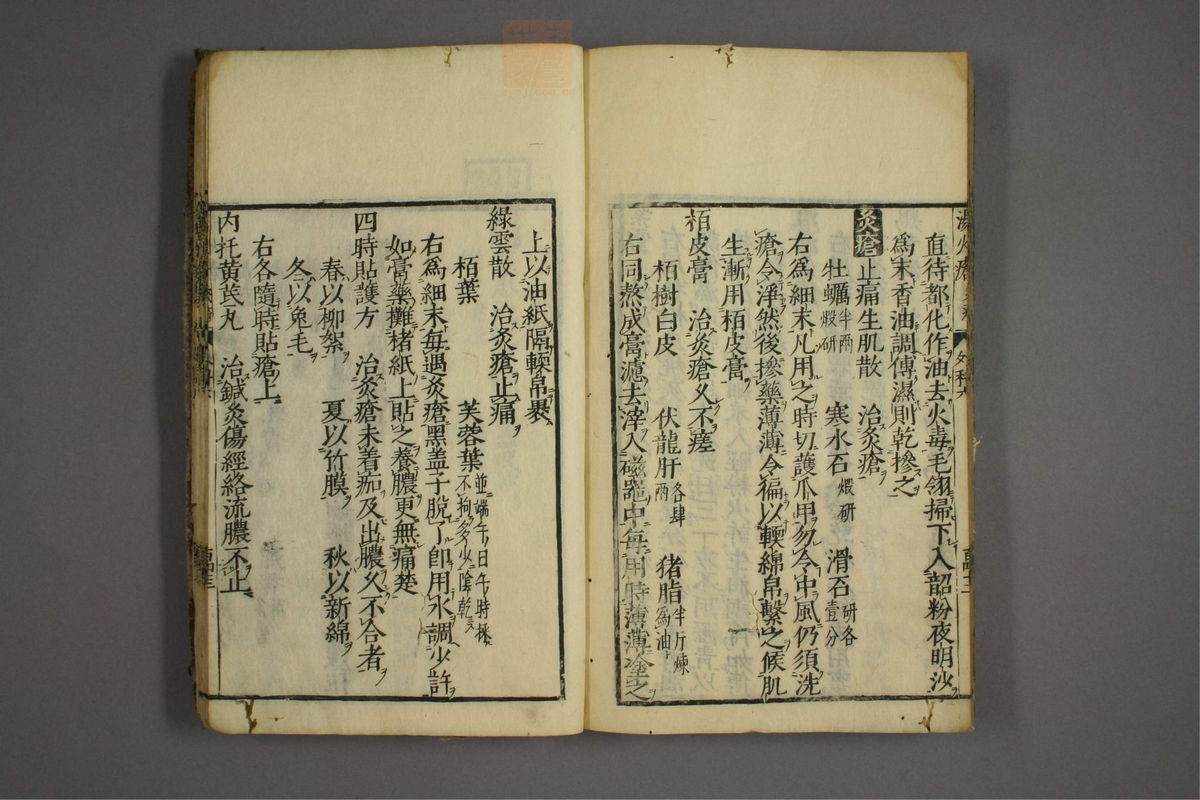 直待都化作油去火毒毛翎掃下入韶粉夜明沙
爲末香油調傅濕則乾摻之
灸瘡 止痛生肌散 治灸瘡
牡蠣煅研半兩 寒水石煅研 滑石研各壹分
右爲細末凡用之時切護爪甲勿令中風仍須洗
瘡令淨然後摻藥薄薄令徧以輭綿帛繫之候肌
生漸用栢皮膏
栢皮膏 治灸瘡久不瘥
栢樹白皮 伏龍肝各肆兩 猪脂半斤煉爲油
右同熬成膏濾去滓入磁器中每用時薄薄塗之
上以油紙隔輭帛裹
綠雲散 治灸瘡止痛
栢葉 芙蓉葉並端午日午時採不拘多少陰乾
右爲細末每遇灸瘡黑盖子脫了卽用水調少許
如膏藥攤楮紙上貼之養膿更無痛楚
四時貼護方 治灸瘡未着痂及出膿久不合者
春以柳絮 夏以竹膜 秋以新綿
冬以兔毛
右各隨時貼瘡上
內托黃芪丸 治鍼灸傷經絡流膿不止